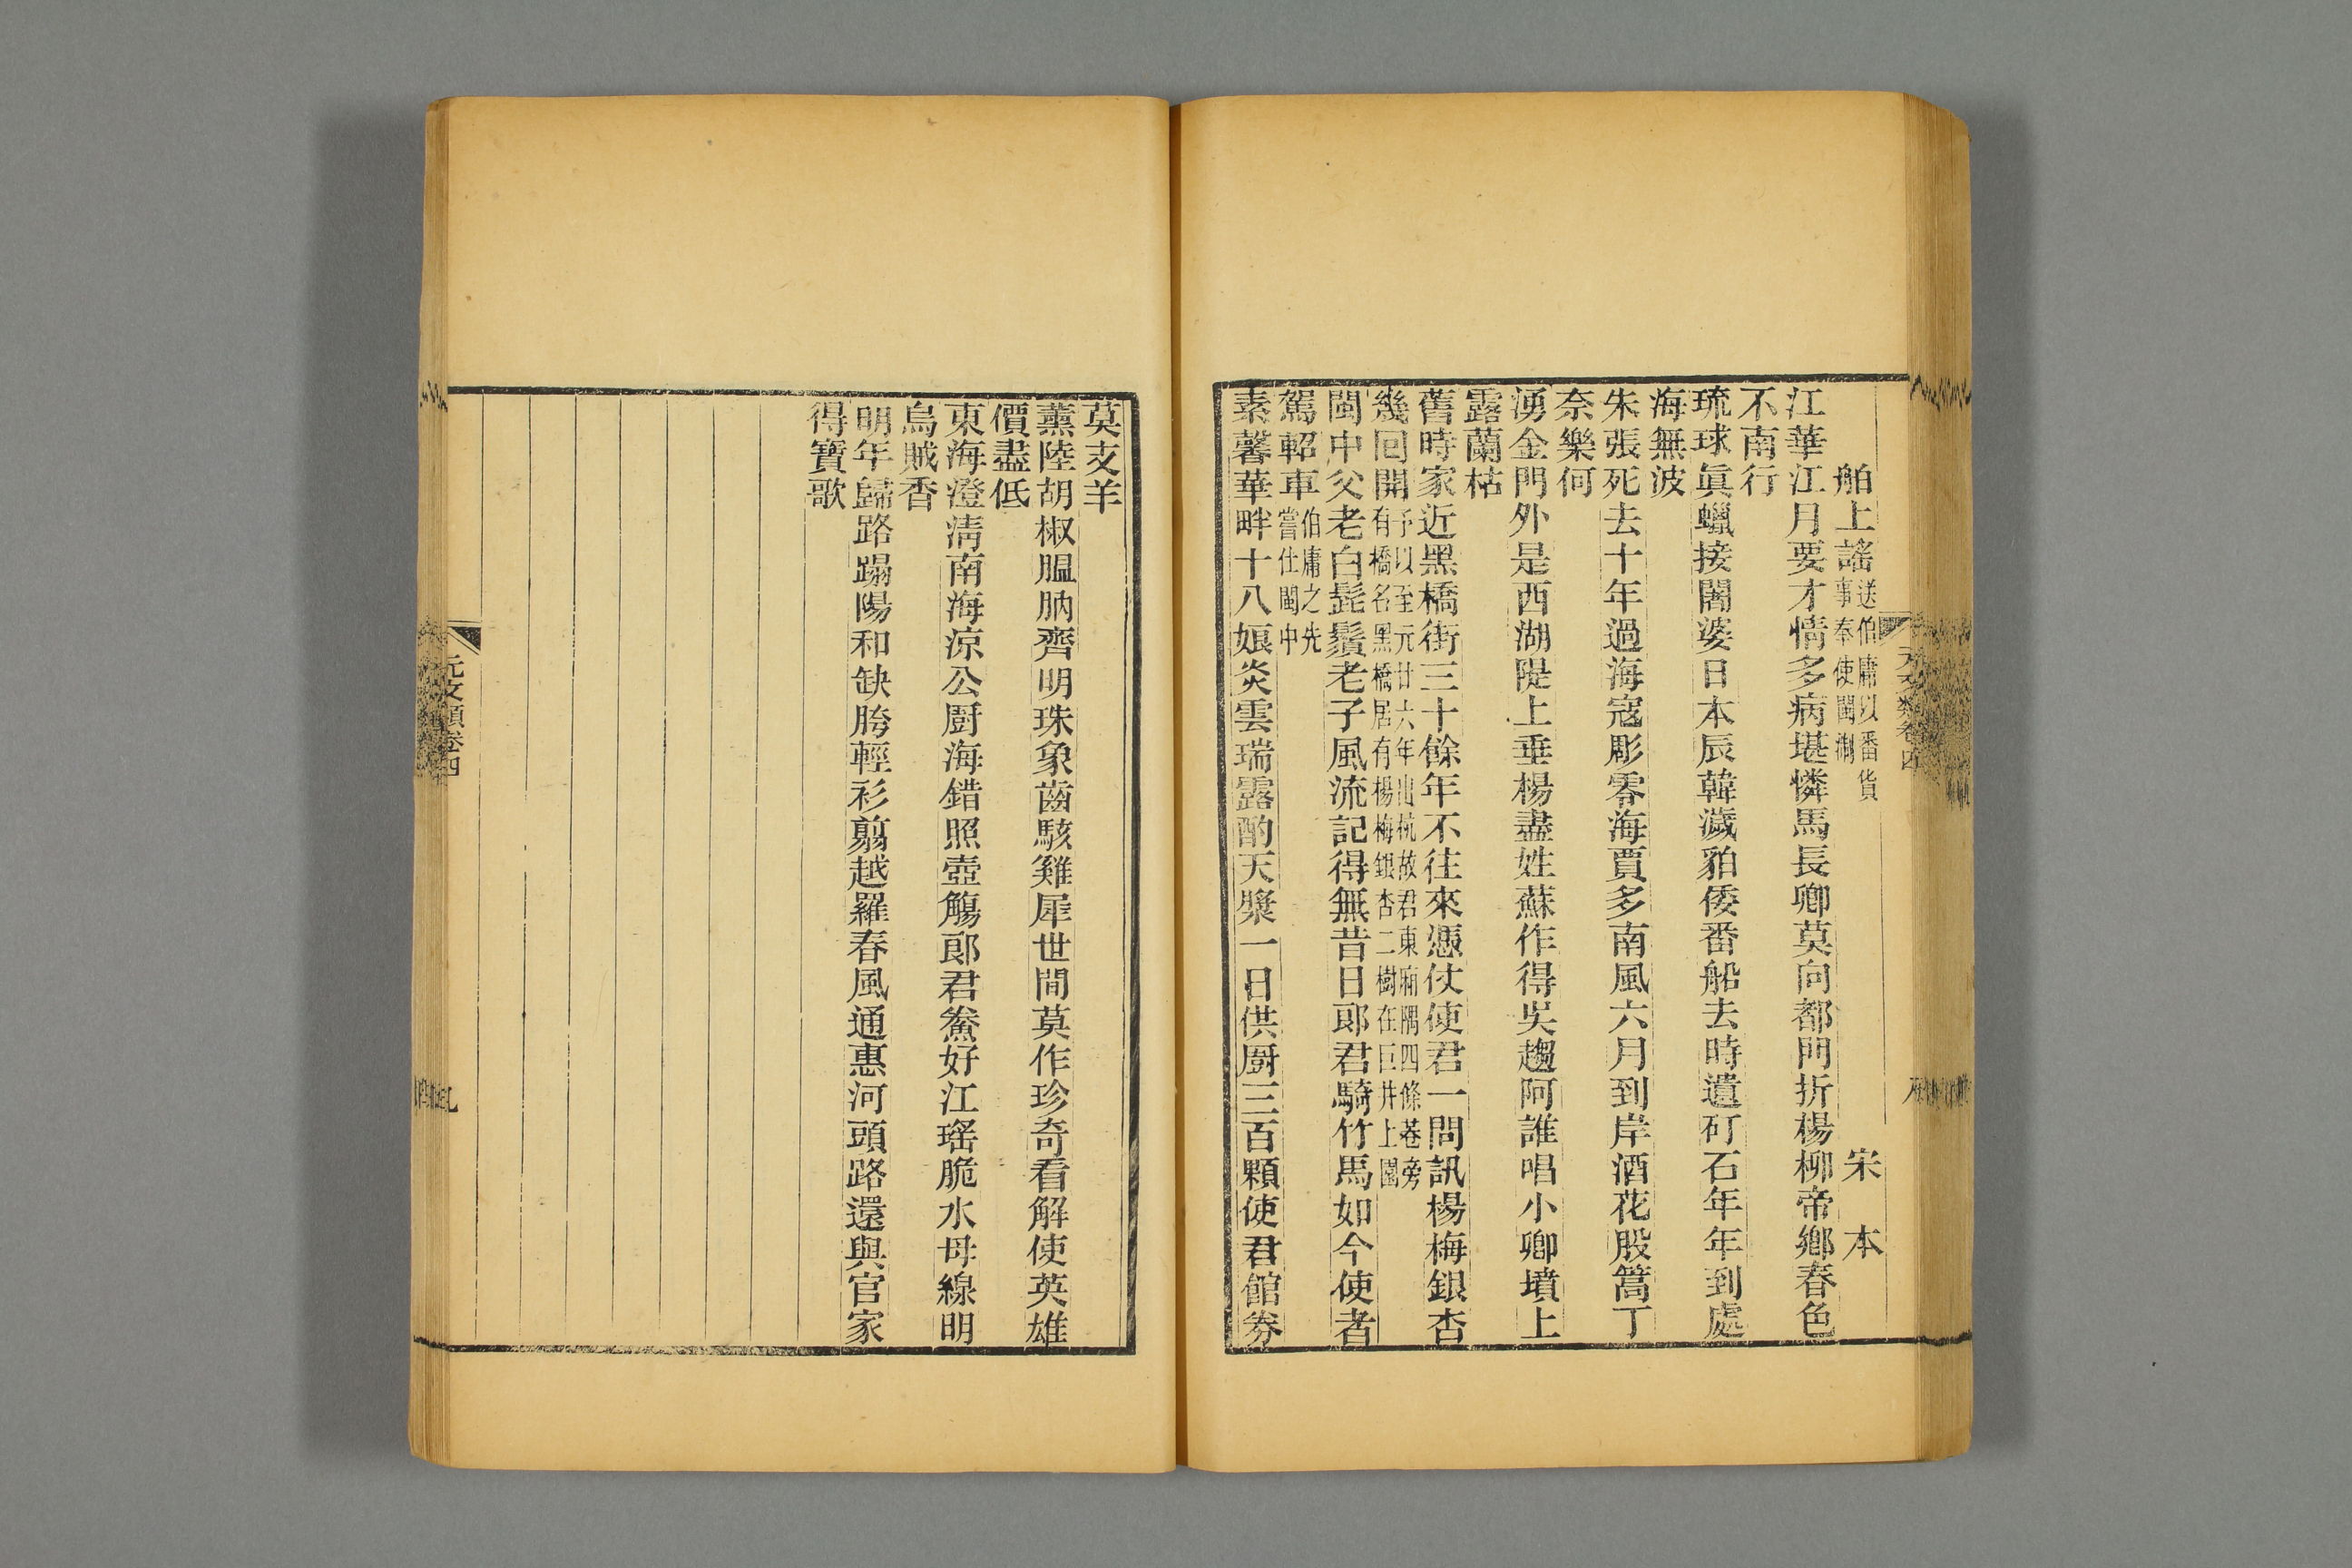 舶上謠送伯庸以番貨事奉使閩浙　宋本
江華江月要才情多病堪憐馬長卿莫向都門折楊柳帝鄉春色
不南行
琉球眞蠟接闍婆日本辰韓濊貊倭番船去時遺矴石年年到處
海無波
朱張死去十年過海寇彫零海賈多南風六月到岸酒花股篙丁
奈樂何
湧金門外是西湖隄上垂楊盡姓蘇作得吳趨阿誰唱小卿墳上
露蘭枯
舊時家近黑橋街三十餘年不往來憑仗使君一問訊楊梅銀杏
幾回開予以至元廿六年出杭故君東廂隅四條巷旁有橋名黑橋居有楊梅銀杏二樹在巨井上園
閩中父老白髭鬚老子風流記得無昔日郎君騎竹馬如今使者
駕軺車伯庸之先嘗仕閩中
素馨華畔十八娘炎雲瑞露酌天漿一日供厨三百顆使君館劵
莫支羊
薰陸胡椒膃肭齊明珠象齒駭雞犀世間莫作珍奇看解使英雄
價盡低
東海澄淸南海涼公厨海錯照壺觴郎君鮝好江瑤脆水母線明
烏賊香
明年歸路蹋陽和缺胯輕衫翦越羅春風通惠河頭路還與官家
得寶歌
元文類卷四